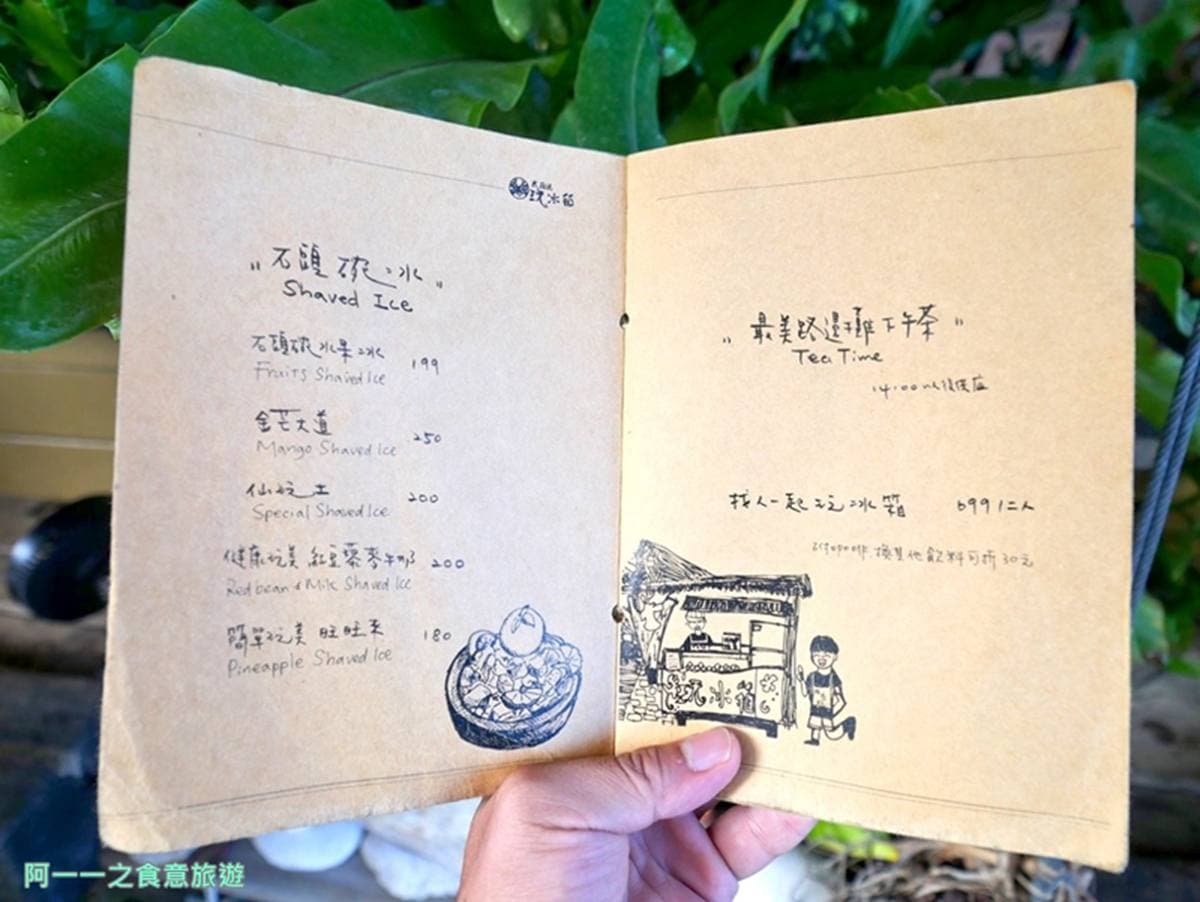 玩冰箱
"石頭碗冰"
Shaved Ice
石頭碗水果冰 199
Fruits Shaved Ice
金芒大道 250
Mango Shaved Ice
仙玩主 200
Special Shaved Ice
健康玩美 紅豆蕎麥牛奶 200
Red bean & Milk Shaved Ice
簡單玩美 旺旺來 180
Pineapple Shaved Ice
"最美路邊攤下午茶"
Tea Time
14:00以後供應
找人一起玩冰箱 699/二人
附咖啡.換其他飲料可折30元
玩冰箱
阿一一之食意旅遊